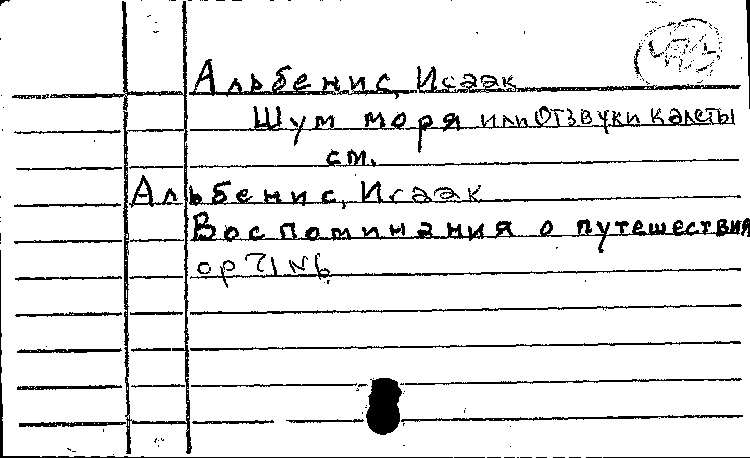 Альбенис, Исаак
Шум моря или Отзвуки калеты
см.
Альбенис, Исаак
Воспоминания о путешествия
op 71 N 6